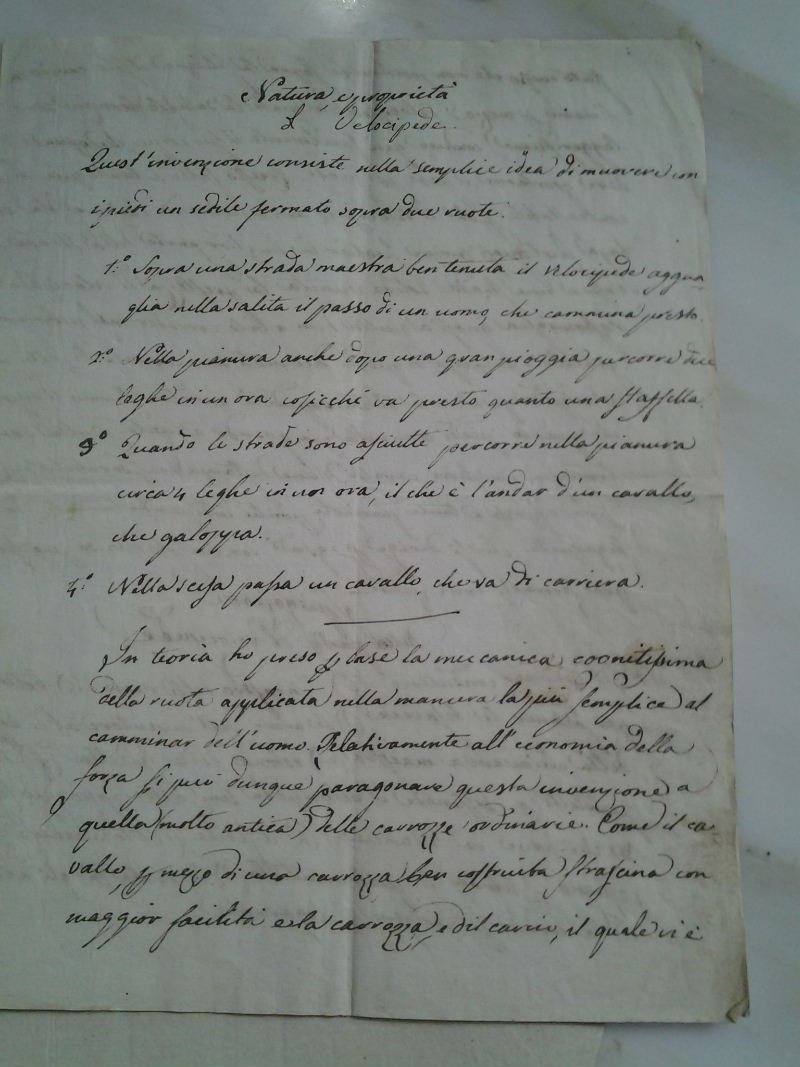 Natura, e proprietà
d Velocipede.
Quest'invenzione consiste nella semplice idea di muovere con
i piedi un sedile fermato sopra due ruote.
1.° Sopra una strada maestra ben tenuta il velocipede aggua
glia nella salita il passo di un uomo, che cammina presto.
2.° Nella pianura anche dopo una gran pioggia percorre due
leghe in un ora cosicché va presto quanto una staffella.
3° Quando le strade sono asciutte percorre nella pianura
circa 4 leghe in un ora, il che è l'andar d'un cavallo,
che galoppa.
4.° Nella scesa passa un cavallo, che va di carriera.
In teoria ho preso p base la meccanica cognitissima
della ruota applicata nella maniera la più semplice al
camminar dell'uomo. Relativamente all'economia della
forza si può dunque paragonare questa invenzione a
quella (molto antica) delle carrozze ordinarie. Come il ca
vallo, p mezzo di una carrozza ben costruita strascina con
maggior facilità e la carrozza, ed il carico, il quale vi è